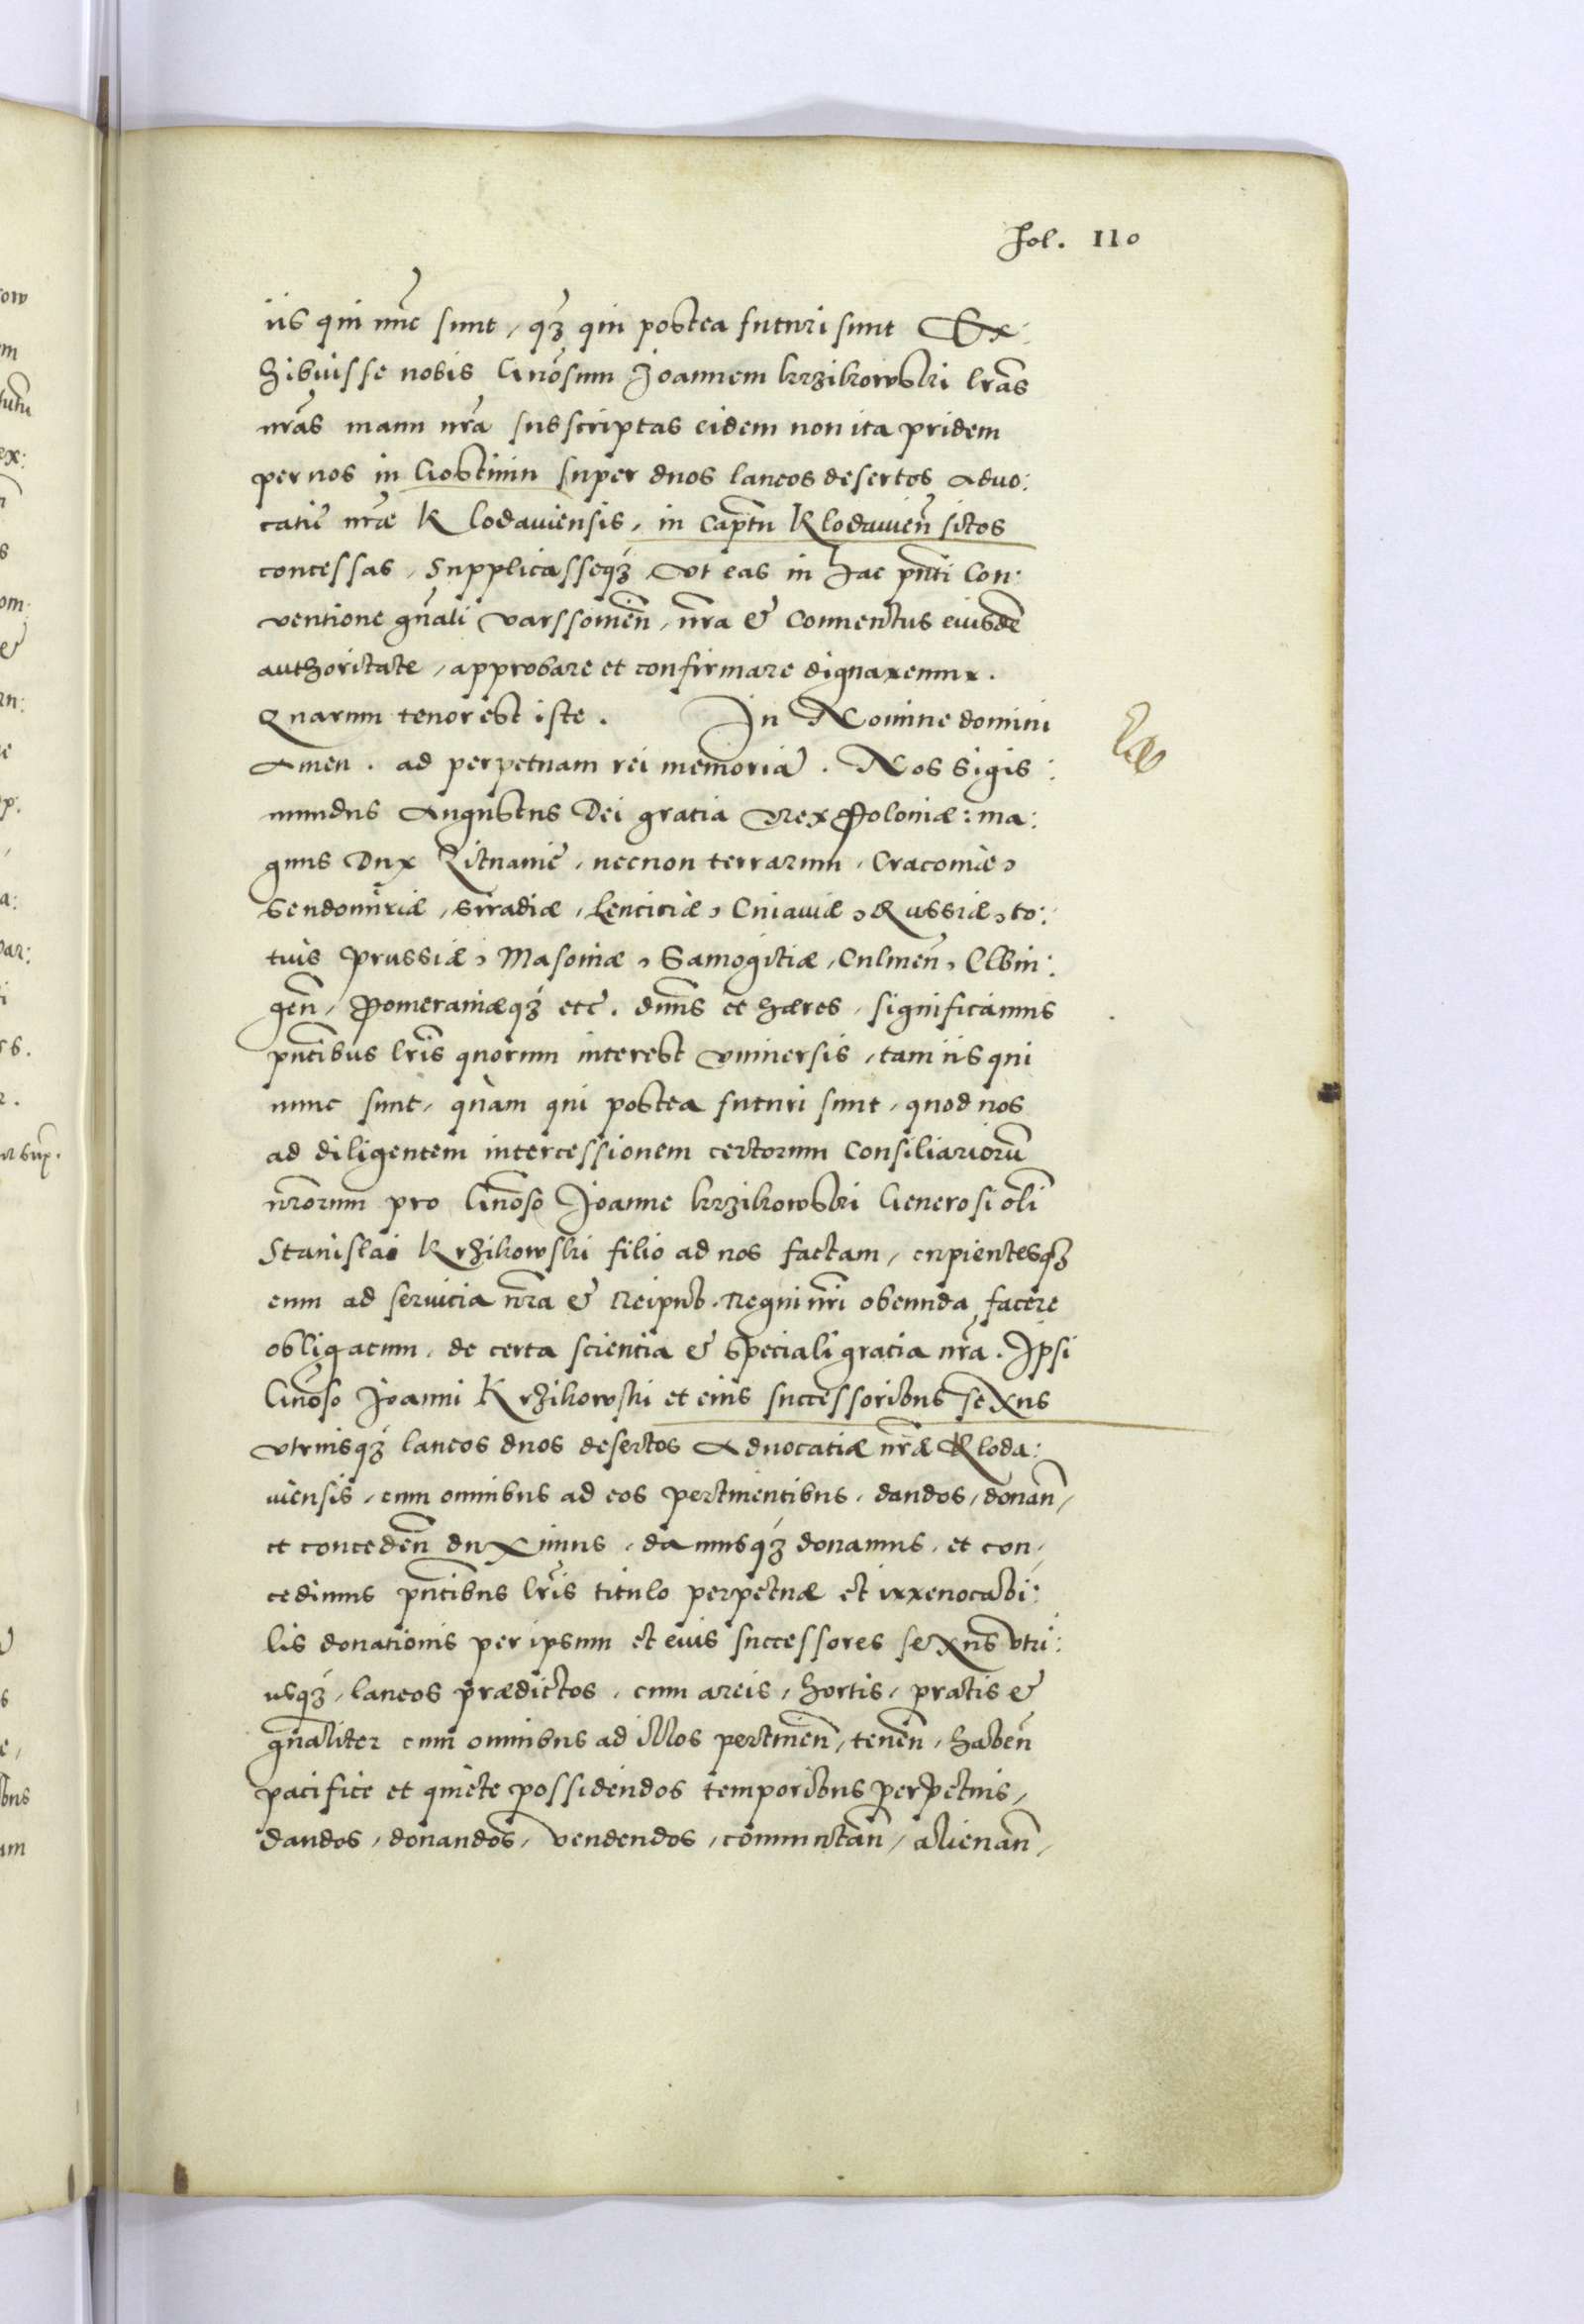 fol. 110
iis qui nũc sunt, q̃ʒ qui postea futuri sunt Ex:
hibuisse nobis Gnõsum Joannem krzikowski lrãs
nrãs manu nrã subscriptas eidem non ita pridem
per nos in Gostinin super duos laneos desertos Advo:
catiẽ nrãe Klodauiensis, in Cap̃tu Klodauien̄ sitos
concessas, Supplicasseqʒ vt eas in hac pn̄ti Con:
ventione gn̄ali varssouien̄, nr̄a & Conuentus eiusdẽ
authoritate, approbare et confirmare dignaremur.
Quarum tenor est iste. In Nomine domini
Amen. ad perpetuam rei memoriã. Nos Sigis:
mundus Augustus Dei gratia Rex Poloniæ: ma:
gnus Dux Lituanie, necnon terrarum, Cracouie,
Sendomiriæ, Siradiæ, Lenciciæ, Cuiauiæ, Russiæ, to:
tius Prussiæ, Masouiæ, Samogitiæ, Culmen̄, Elbin:
gen̄, Pomeraniæqʒ etc̄. dñns et hæres, significamus
pn̄tibus lrĩs quorum interest vniuersis, tam iis qui
nunc sunt, quàm qui postea futuri sunt, quod nos
ad diligentem intercessionem certorum Consiliariorũ
nr̄orum pro Gnõso Joanne krzikowski Generosi olĩ
Stanislai Krzikowski filio ad nos factam, cupientesqʒ
eum ad seruicia nr̄a & Reipub. Regni nr̄i obeunda facere
obligatum, de certa scientia & speciali gratia nr̄a. Ipsi
Gnõso Joanni Krzikowski et eius successoribus sexus
vtriusqʒ laneos duos desertos Aduocatiæ nr̄æ Kloda:
uiensis, cum omnibus ad eos pertinentibus, dandos, donan̄,
et conceden̄ duximus, damusqʒ donamus, et con,
cedimus pn̄tibus lrĩs titulo perpetuæ et irreuocabi:
lis donationis per ipsum et eius successores sexus vtri:
usqʒ, laneos prædictos, cum areis, hortis, pratis &
gn̄aliter cum omnibus ad illos pertinen̄, tenen̄, haben̄
pacifice et quiete possidendos temporibus perpetuis,
dandos, donandos, vendendos, commutan̄, alienan̄,